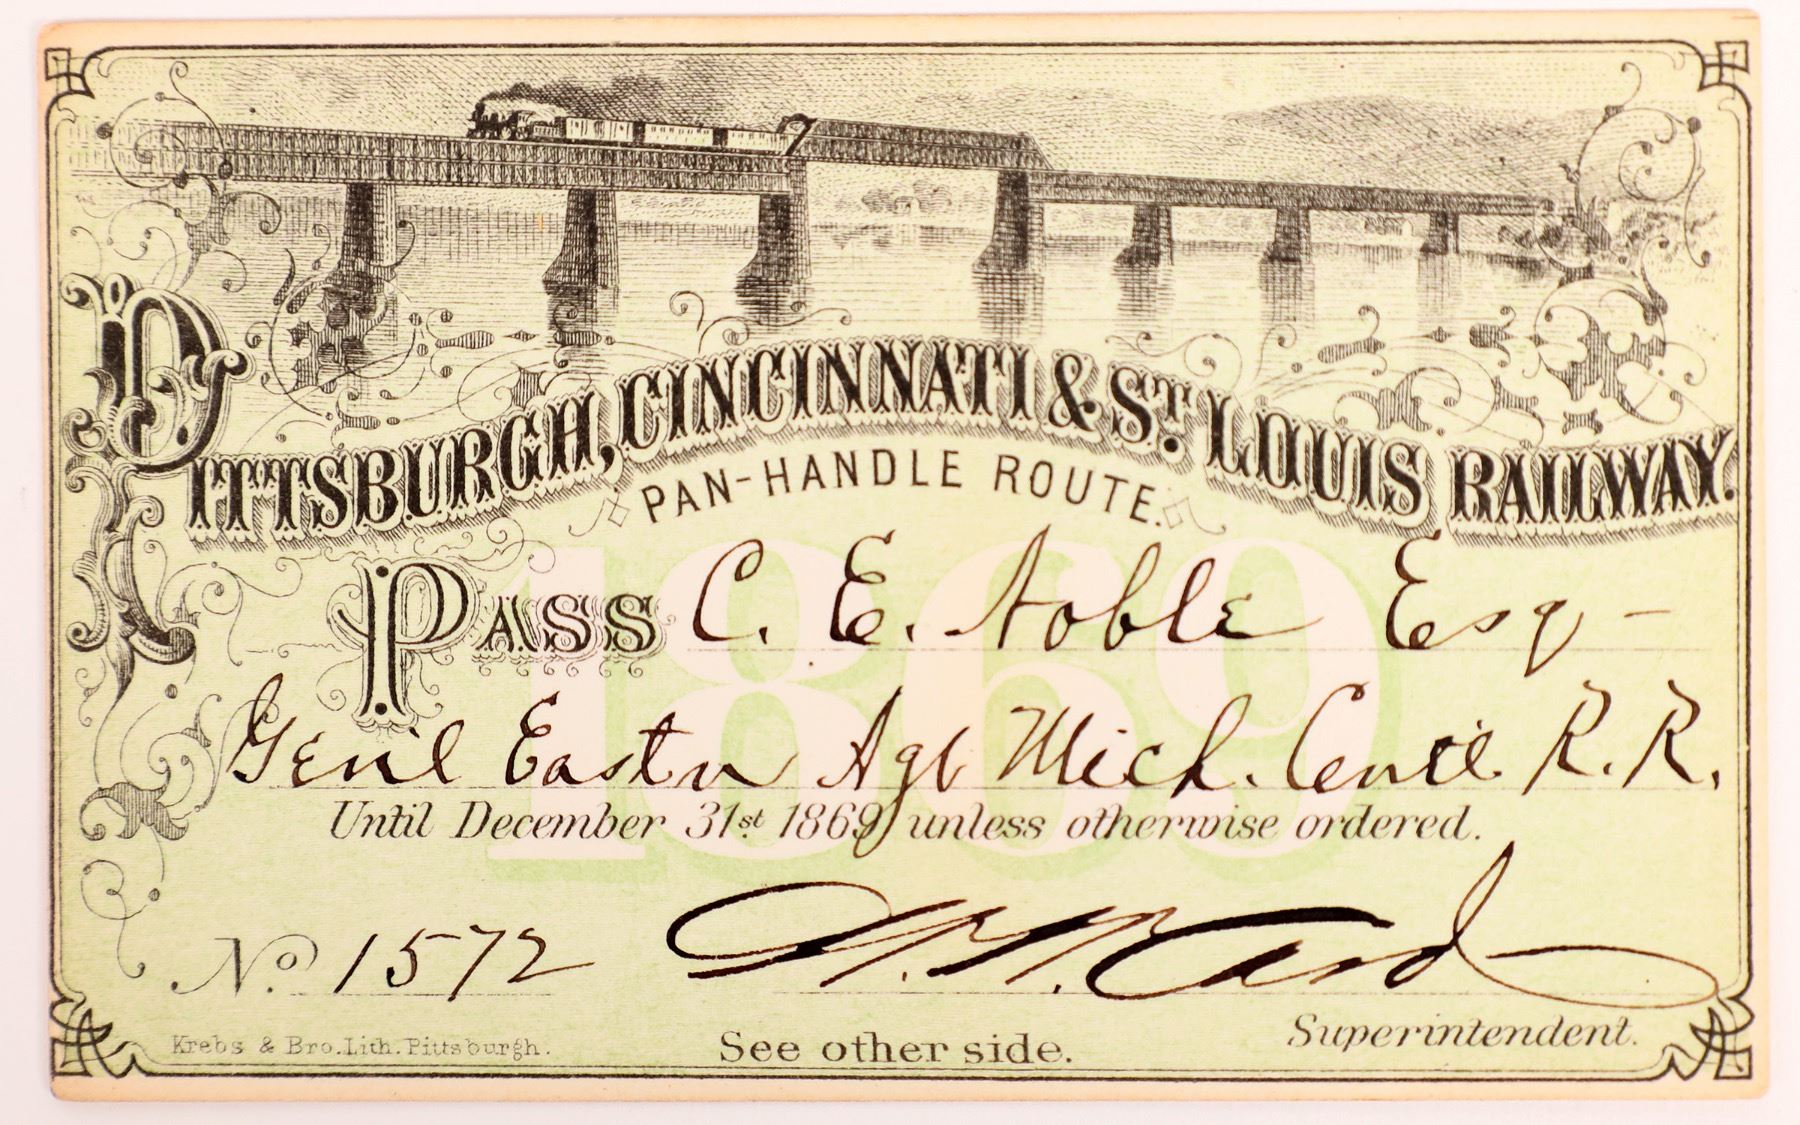 PITTSBURGH, CINCINNATI & ST. LOUIS RAILWAY.
PAN-HANDLE ROUTE.
1869
PASS C. E. Noble Esq -
Gen'l Eastn Agt Mich. Cent'l R. R.
Until December 31st 1869 unless otherwise ordered.
No. 1572 W. W. Card
Superintendent.
Krebs & Bro. Lith. Pittsburgh. See other side.